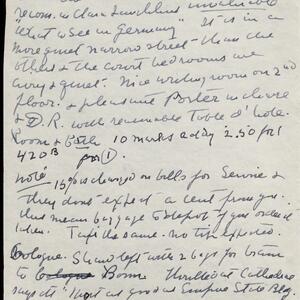 recom. in Clara Laughlin's invaluable
"What to See in Germany" It is in a
more quiet narrow street - than the
others & the court bedrooms are
airy & quiet. Nice writing room on 2nd
floor. & pleasant Porter in charge
& D.R. with reasonable Table d'hote.
Room & Bath 10 marks a day 2.50 for 1
420B for (1).
note 15% is charged on bills for Service &
they don't expect a cent from you.
this mean baggage to depot if you ordered
then. Taxi the same. no tip expected.
Cologne. SK and left with 2 bgs for train
to Cologne Bonn Thrilled at Cathedral
says its "most as good as Empire State Bldg